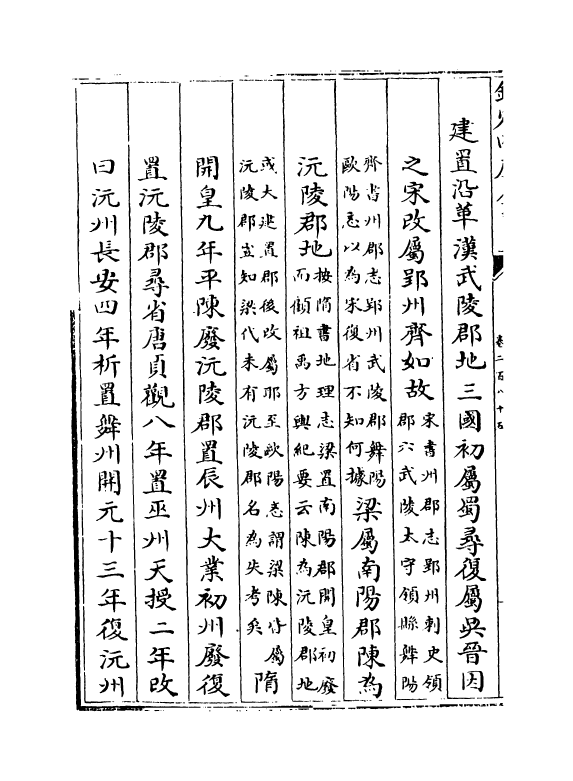 卷二百八十五
建置沿革漢武陵郡地三國初屬蜀尋復屬吳晉因
之宋改屬郢州齊如故宋書州郡志郢州刺史領
郡六武陵太守領縣舞陽
齊書州郡志郢州武陵郡舞陽
歐陽忞以為宋復省不知何據梁屬南陽郡陳為
沅陵郡地按隋書地理志梁置南陽郡開皇初廢
而顧祖禹方輿紀要云陳為沅陵郡地
或大建置郡後改屬耶至歐陽忞謂梁陳皆屬
沅陵郡豈知梁代未有沅陵郡名為失考矣隋
開皇九年平陳廢沅陵郡置辰州大業初州廢復
置沅陵郡尋省唐貞觀八年置巫州天授二年改
曰沅州長安四年析置舞州開元十三年復沅州